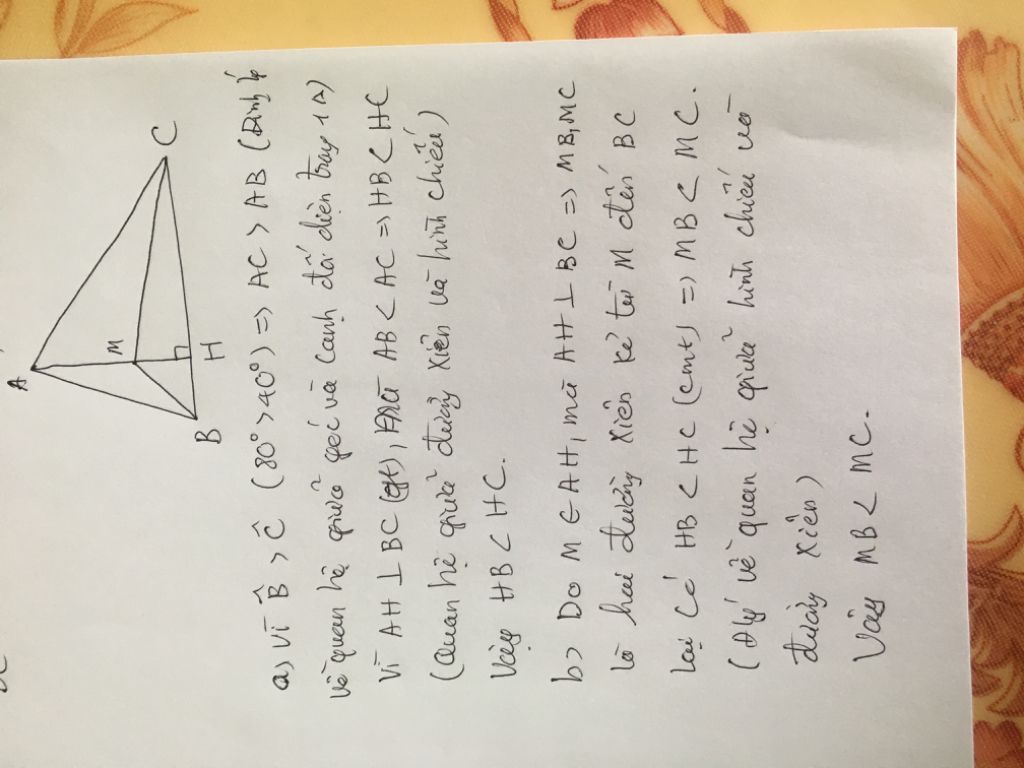 A
M
B
H
C
a) Vì B̂ > Ĉ (80° > 40°) => AC > AB (Định lý
về quan hệ giữa góc và cạnh đối diện trong 1 Δ)
Vì AH ⊥ BC (gt), mà AB < AC => HB < HC
(Quan hệ giữa đường xiên và hình chiếu)
Vậy HB < HC.
b) Do M ∈ AH, mà AH ⊥ BC => MB, MC
là hai đường xiên kẻ từ M đến BC
Lại có HB < HC (cmt) => MB < MC.
(Đlý về quan hệ giữa hình chiếu và
đường xiên)
Vậy MB < MC.